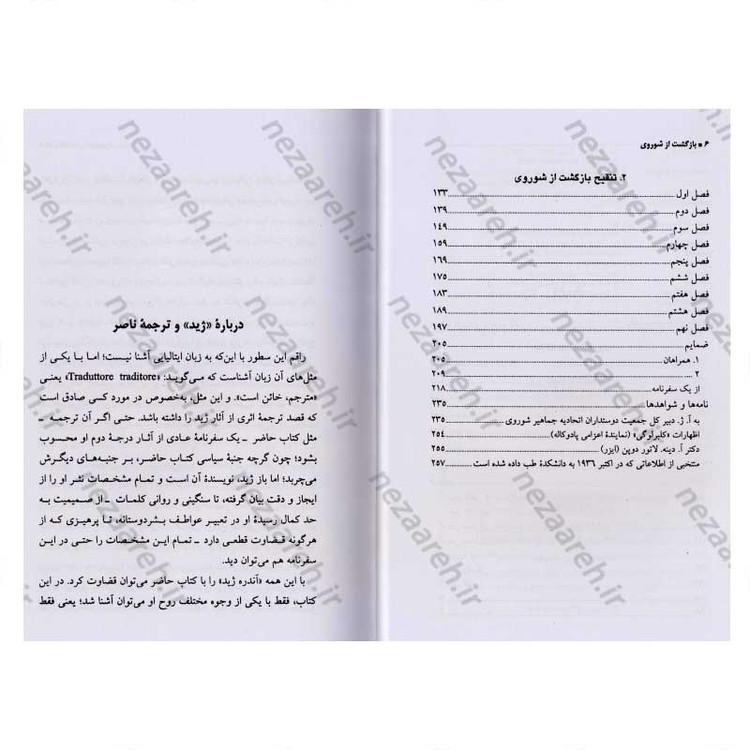 ۶ ■ بازگشت از شوروی
۲. تنقیح بازگشت از شوروی
فصل اول ۱۳۳
فصل دوم ۱۳۹
فصل سوم ۱۴۹
فصل چهارم ۱۵۹
فصل پنجم ۱۶۹
فصل ششم ۱۷۵
فصل هفتم ۱۸۳
فصل هشتم ۱۸۹
فصل نهم ۱۹۷
ضمایم ۲۰۵
۱. همراهان ۲۰۵
۲ ۲۰۹
از یک سفرنامه ۲۱۸
نامه‌ها و شواهدها ۲۳۵
به آ. ژ. دبیر کل جمعیت دوستداران اتحادیه جماهیر شوروی ۲۳۵
اظهارات «کلبرلوگی» (نمایندهٔ اعزامی پادوکاله) ۲۵۴
دکتر آ. دینه. لاتور دوپن (ایزر) ۲۵۵
منتخبی از اطلاعاتی که در اکتبر ۱۹۳۶ به دانشکدهٔ طب داده شده است ۲۵۷
دربارهٔ «ژید» و ترجمهٔ ناصر
راقم این سطور با این‌که به زبان ایتالیایی آشنا نیست؛ اما با یکی از
مثل‌های آن زبان آشناست که می‌گوید: «Traduttore traditore» یعنی
«مترجم، خائن است». و این مثل، به‌خصوص در مورد کسی صادق است
که قصد ترجمهٔ اثری از آثار ژید را داشته باشد. حتی اگر آن ترجمه ـ
مثل کتاب حاضر ـ یک سفرنامهٔ عادی از آثار درجهٔ دوم او محسوب
بشود؛ چون گرچه جنبهٔ سیاسی کتاب حاضر، بر جنبه‌های دیگرش
می‌چربد؛ اما باز ژید، نویسندهٔ آن است و تمام مشخصات نثر او را از
ایجاز و دقت بیان گرفته، تا سنگینی و روانی کلمات ـ از صمیمیت به
حد کمال رسیدهٔ او در تعبیر عواطف بشردوستانه، تا پرهیزی که از
هرگونه قضاوت قطعی دارد ـ تمام این مشخصات را حتی در این
سفرنامه هم می‌توان دید.
با این همه «آندره ژید» را با کتاب حاضر می‌توان قضاوت کرد. در این
کتاب، فقط با یکی از وجوه مختلف روح او می‌توان آشنا شد؛ یعنی فقط
nezaareh.ir
nezaareh.ir
nezaareh.ir
nezaareh.ir
nezaareh.ir
nezaareh.ir
nezaareh.ir
nezaareh.ir
nezaareh.ir